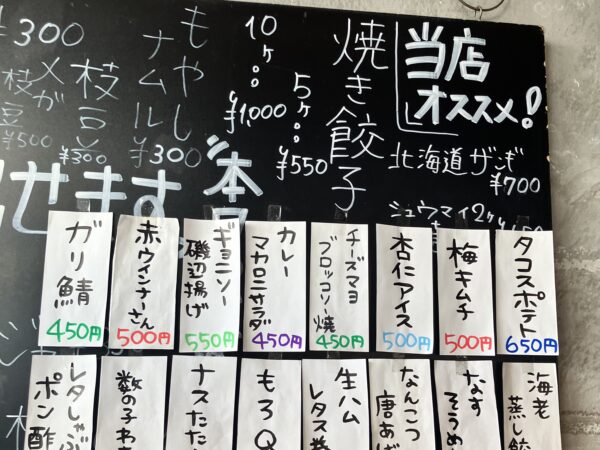 当店
オススメ!
北海道ザンギ
¥700
シュウマイ2ヶ
焼き餃子
5ヶ
¥550
10ヶ
¥1,000
もやし
ナムル
¥300
枝豆
¥300
メガ
枝豆
¥500
¥300
せます。
本日
タコスポテト
650円
梅キムチ
500円
杏仁アイス
500円
チーズマヨ
ブロッコリー焼
450円
カレー
マカロニサラダ
450円
ギョニソー
磯辺揚げ
550円
赤ウインナーさん
500円
ガリ鯖
450円
海老
蒸し餃
なす
そうめ
なんこつ
唐あげ
生ハム
レタス巻
もろQ
ナスたた
数の子わ
レタしゃぶ
ポン酢